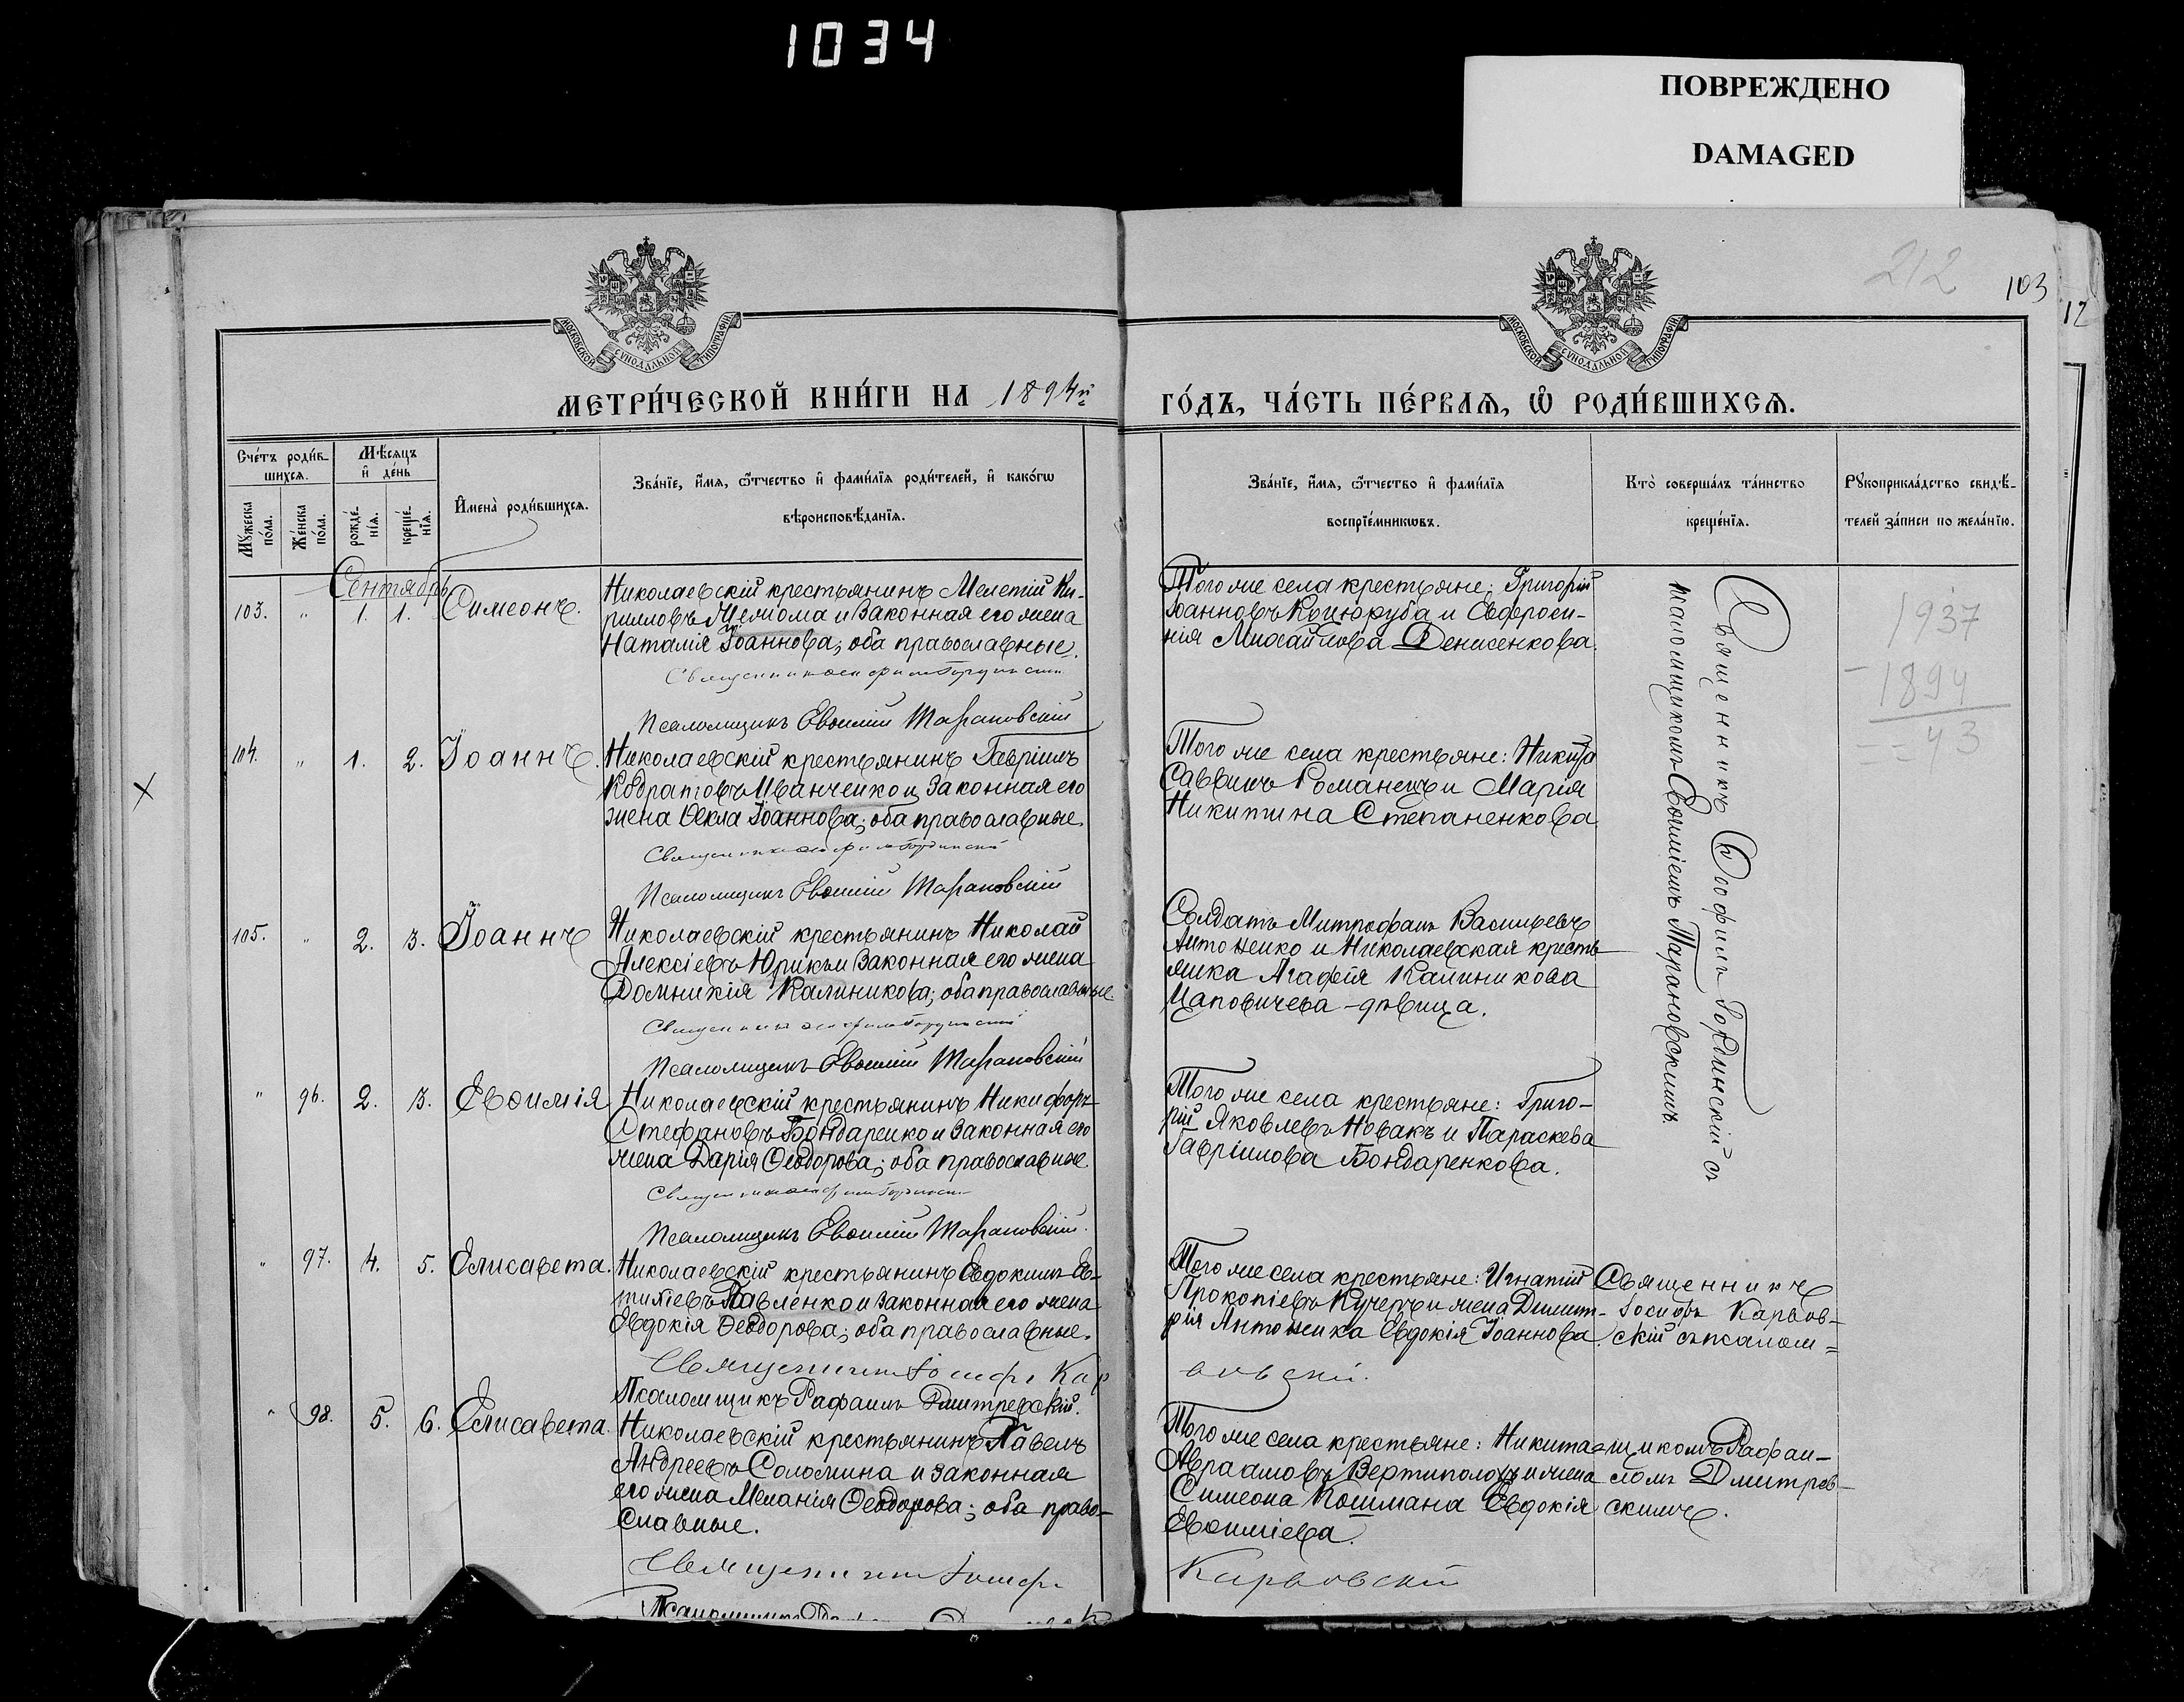 1034
ПОВРЕЖДЕНО
DAMAGED
212
103
12
МОСКОВСКОЙ СУНОДАЛЬНОЙ ТИПОГРАФІИ
МОСКОВСКОЙ СУНОДАЛЬНОЙ ТИПОГРАФІИ
МЕТРИ́ЧЕСКОЙ КНИ́ГИ НА 1894й
ГО́ДЪ, ЧА́СТЬ ПЕ́РВАѦ, Ѽ РОДИ́ВШИХСѦ.
Сче́тъ роди́в-
шихсѧ.
Мѣ́сѧцъ
и҆ де́нь
Мꙋ́жеска по́ла.
Же́нска по́ла.
рожде́-
нїѧ.
креще́-
нїѧ.
И҆мена̀ роди́вшихсѧ.
Зва́нїе, и҆́мѧ, ѻ҆́тчество и҆ фами́лїѧ роди́телей, и҆ како́гѡ
вѣроисповѣ́данїѧ.
Зва́нїе, и҆́мѧ, ѻ҆́тчество и҆ фами́лїѧ
воспрїе́мникѡвъ.
Кто̀ соверша́лъ та́инство
креще́нїѧ.
Рꙋкоприкла́дство свидѣ́-
телей за́писи по жела́нїю.
Сентябрь
103. " 1. 1. Симеонъ.
Николаевскій крестьянинъ Мелетій Ки-
рилловъ и законная его жена
Наталія Іоаннова; оба православные.
Священникъ Ѳеофилъ Гординскій
Псаломщикъ Евѳимій Тарановскій
Того же села крестьяне: Григорій
Іоанновъ Коцюруба и Евфроси-
нія Михайлова Денисенкова.
Священникъ Ѳеофилъ Гординскій съ
псаломщикомъ Евѳиміемъ Тарановскимъ.
1937
- 1894
== 43
104. " 1. 2. Іоаннъ.
Николаевскій крестьянинъ Гавріилъ
Кодратовъ Иванченко и законная его
жена Ѳекла Іоаннова; оба православные.
Священникъ Ѳеофилъ Гординскій
Псаломщикъ Евѳимій Тарановскій
Того же села крестьяне: Никита
Саввинъ Романецъ и Марія
Никитина Степаненкова.
105. " 2. 3. Іоаннъ
Николаевскій крестьянинъ Николай
Алексіевъ Юрикъ и законная его жена
Домникія Калиникова; оба православные.
Священникъ Ѳеофилъ Гординскій
Псаломщикъ Евѳимій Тарановскій
Солдатъ Митрофанъ Васильевъ
Антоненко и Николаевская кресть-
янка Агафія Калиникова
Цаповичева - дѣвица.
" 96. 2. 3. Евѳимія
Николаевскій крестьянинъ Никифоръ
Стефановъ Бондаренко и законная его
жена Дарія Ѳеодорова; оба православные.
Священникъ Ѳеофилъ Гординскій
Псаломщикъ Евѳимій Тарановскій.
Того же села крестьяне: Григо-
рій Яковлевъ Новакъ и Параскева
Гавріилова Бондаренкова.
" 97. 4. 5. Елисавета.
Николаевскій крестьянинъ Евдокимъ Ев-
тиміевъ Павленко и законная его жена
Евдокія Ѳеодорова; оба православные.
Священникъ Іосифъ Кар
Псаломщикъ Рафаилъ Дмитревскій.
Того же села крестьяне: Игнатій
Прокопіевъ Кучеръ и жена Димит-
рія Антоненка Евдокія Іоаннова.
вовскій.
Священникъ
Іосифъ Карвов-
скій съ псалом=
" 98. 5. 6. Елисавета.
Николаевскій крестьянинъ Павелъ
Андреевъ Соломина и законная
его жена Меланія Ѳеодорова; оба право-
славные.
Священникъ Іосифъ
Того же села крестьяне: Никита
Авраамовъ Вертипологъ и жена
Симеона Кошмана Евдокія
Евѳиміева.
Карвовскій
=щикомъ Рафаи-
ломъ Дмитрев-
скимъ.
Псаломщикъ